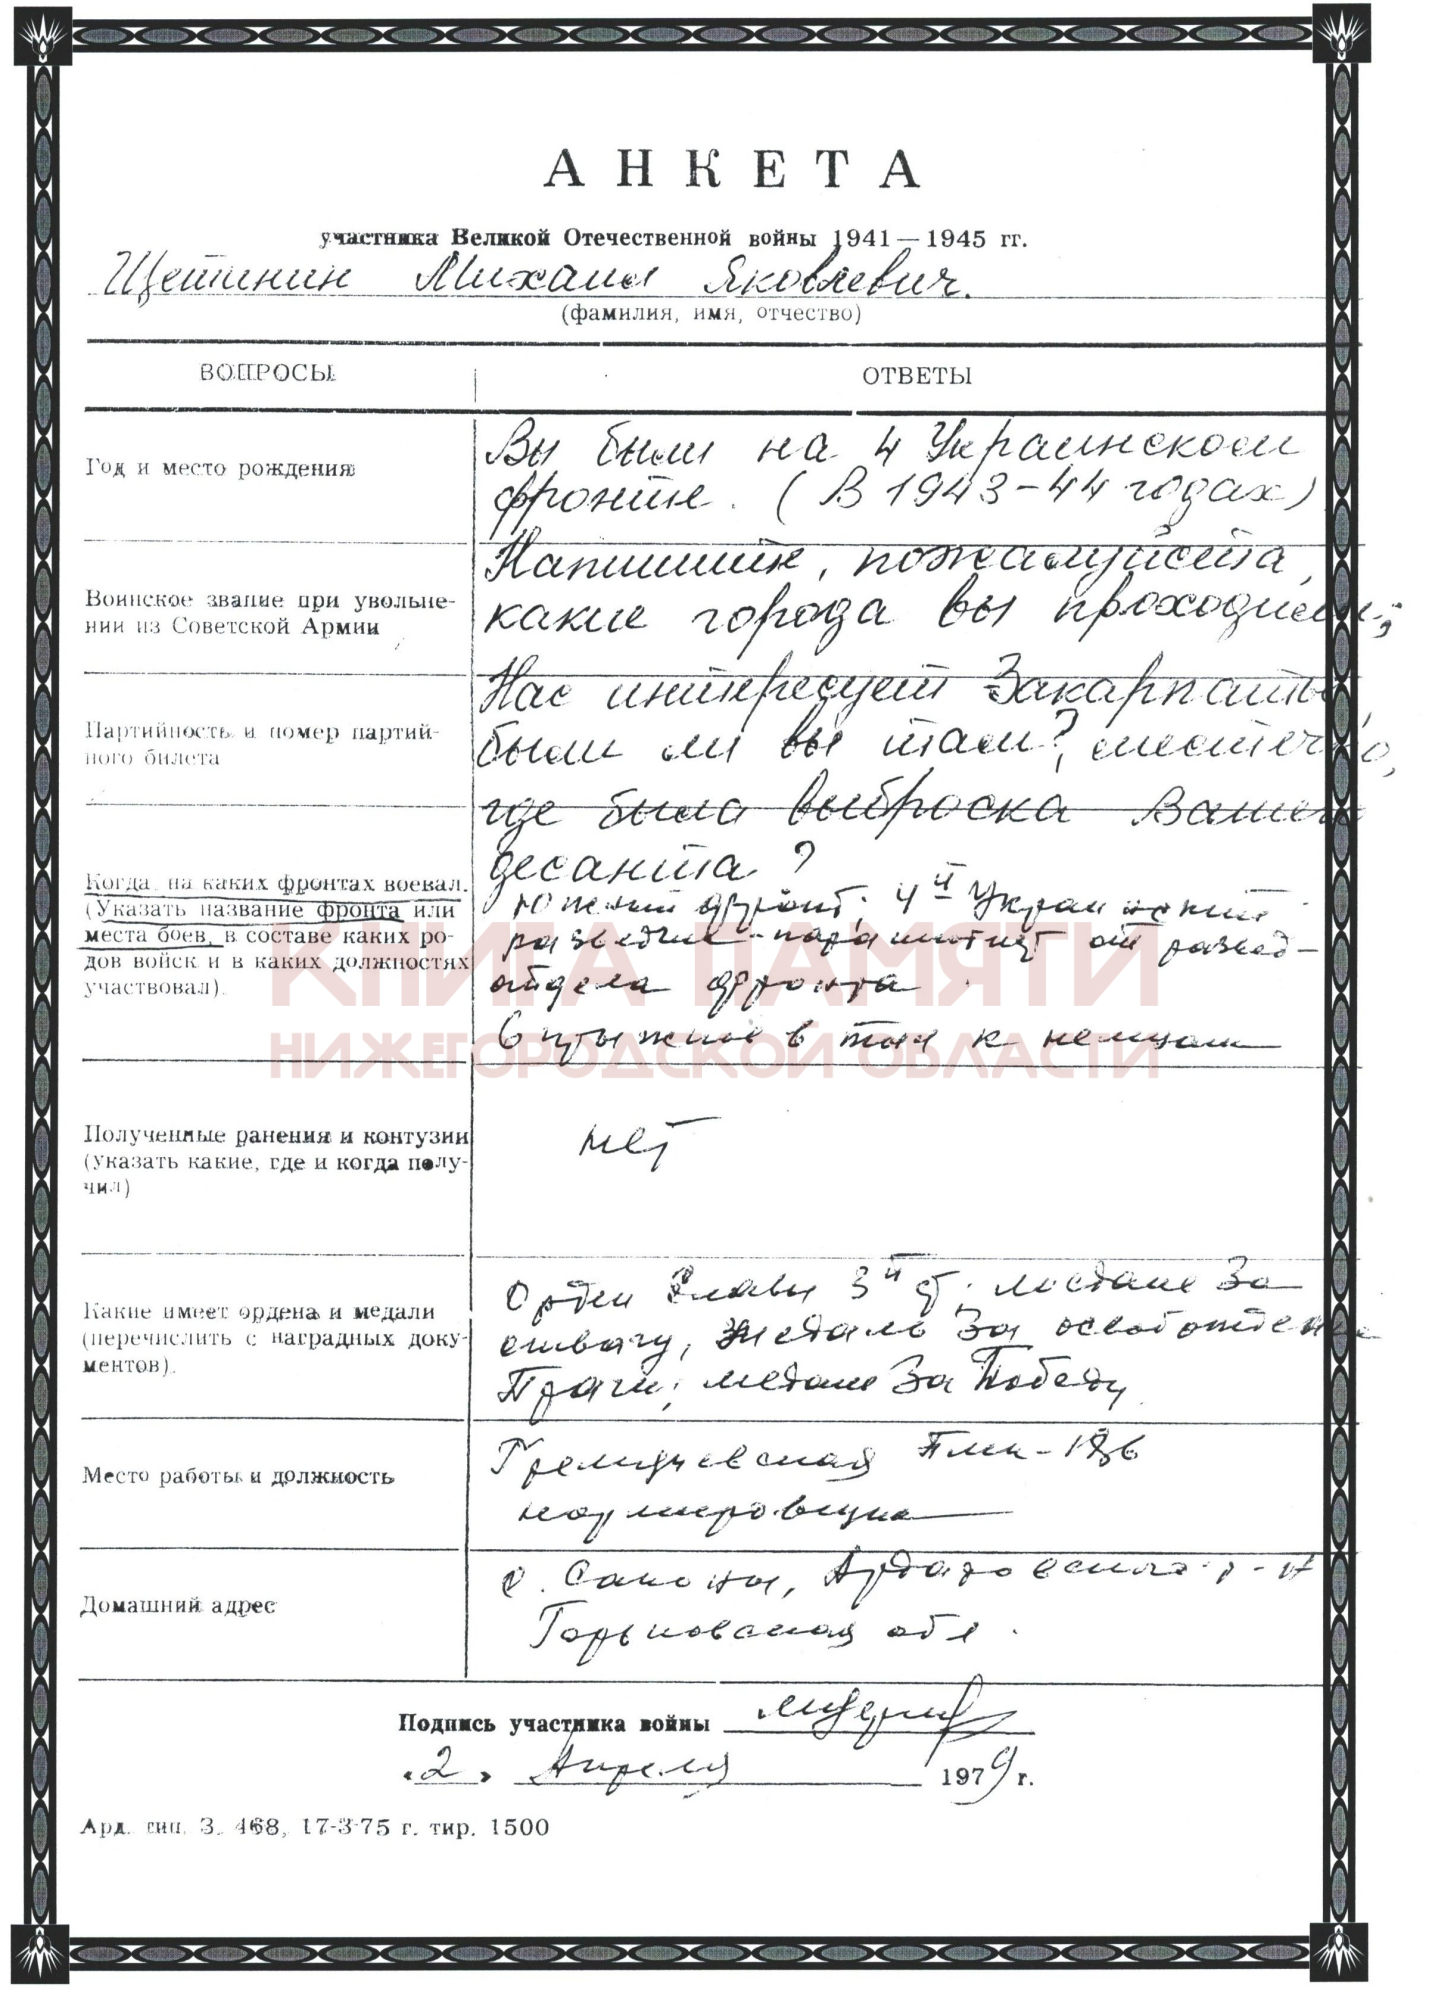 АНКЕТА
участника Великой Отечественной войны 1941—1945 гг.
Щетинин Михаил Яковлевич.
(фамилия, имя, отчество)
ВОПРОСЫ
ОТВЕТЫ
Год и место рождения
Вы были на 4 Украинском
фронте. (В 1943-44 годах)
Воинское звание при увольне-
нии из Советской Армии
Напишите, пожалуйста,
какие города вы проходили;
Партийность и номер партий-
ного билета
Нас интересует Закарпатье,
были ли вы там?, местечко,
где была выброска Вашего
десанта?
Когда, на каких фронтах воевал.
(Указать название фронта или
места боев, в составе каких ро-
дов войск и в каких должностях
участвовал).
южный фронт; 4й Украинский
разведчик-парашютист от развед-
отдела фронта.
6 прыжков в тыл к немцам
Полученные ранения и контузии
(указать какие, где и когда полу-
чил)
нет
Какие имеет ордена и медали
(перечислить с наградных доку-
ментов).
Орден Славы 3й ст. медаль За
отвагу, медаль За освобождение
Праги, медаль За Победу
Место работы и должность
Гремячевская
нормировщик
Домашний адрес
с. Саконы, Ардатовского р-на
Горьковская обл.
Подпись участника войны
«2» Апреля 1979 г.
Ард. тип. З. 468, 17-3-75 г. тир. 1500
КНИГА ПАМЯТИ
НИЖЕГОРОДСКОЙ ОБЛАСТИ